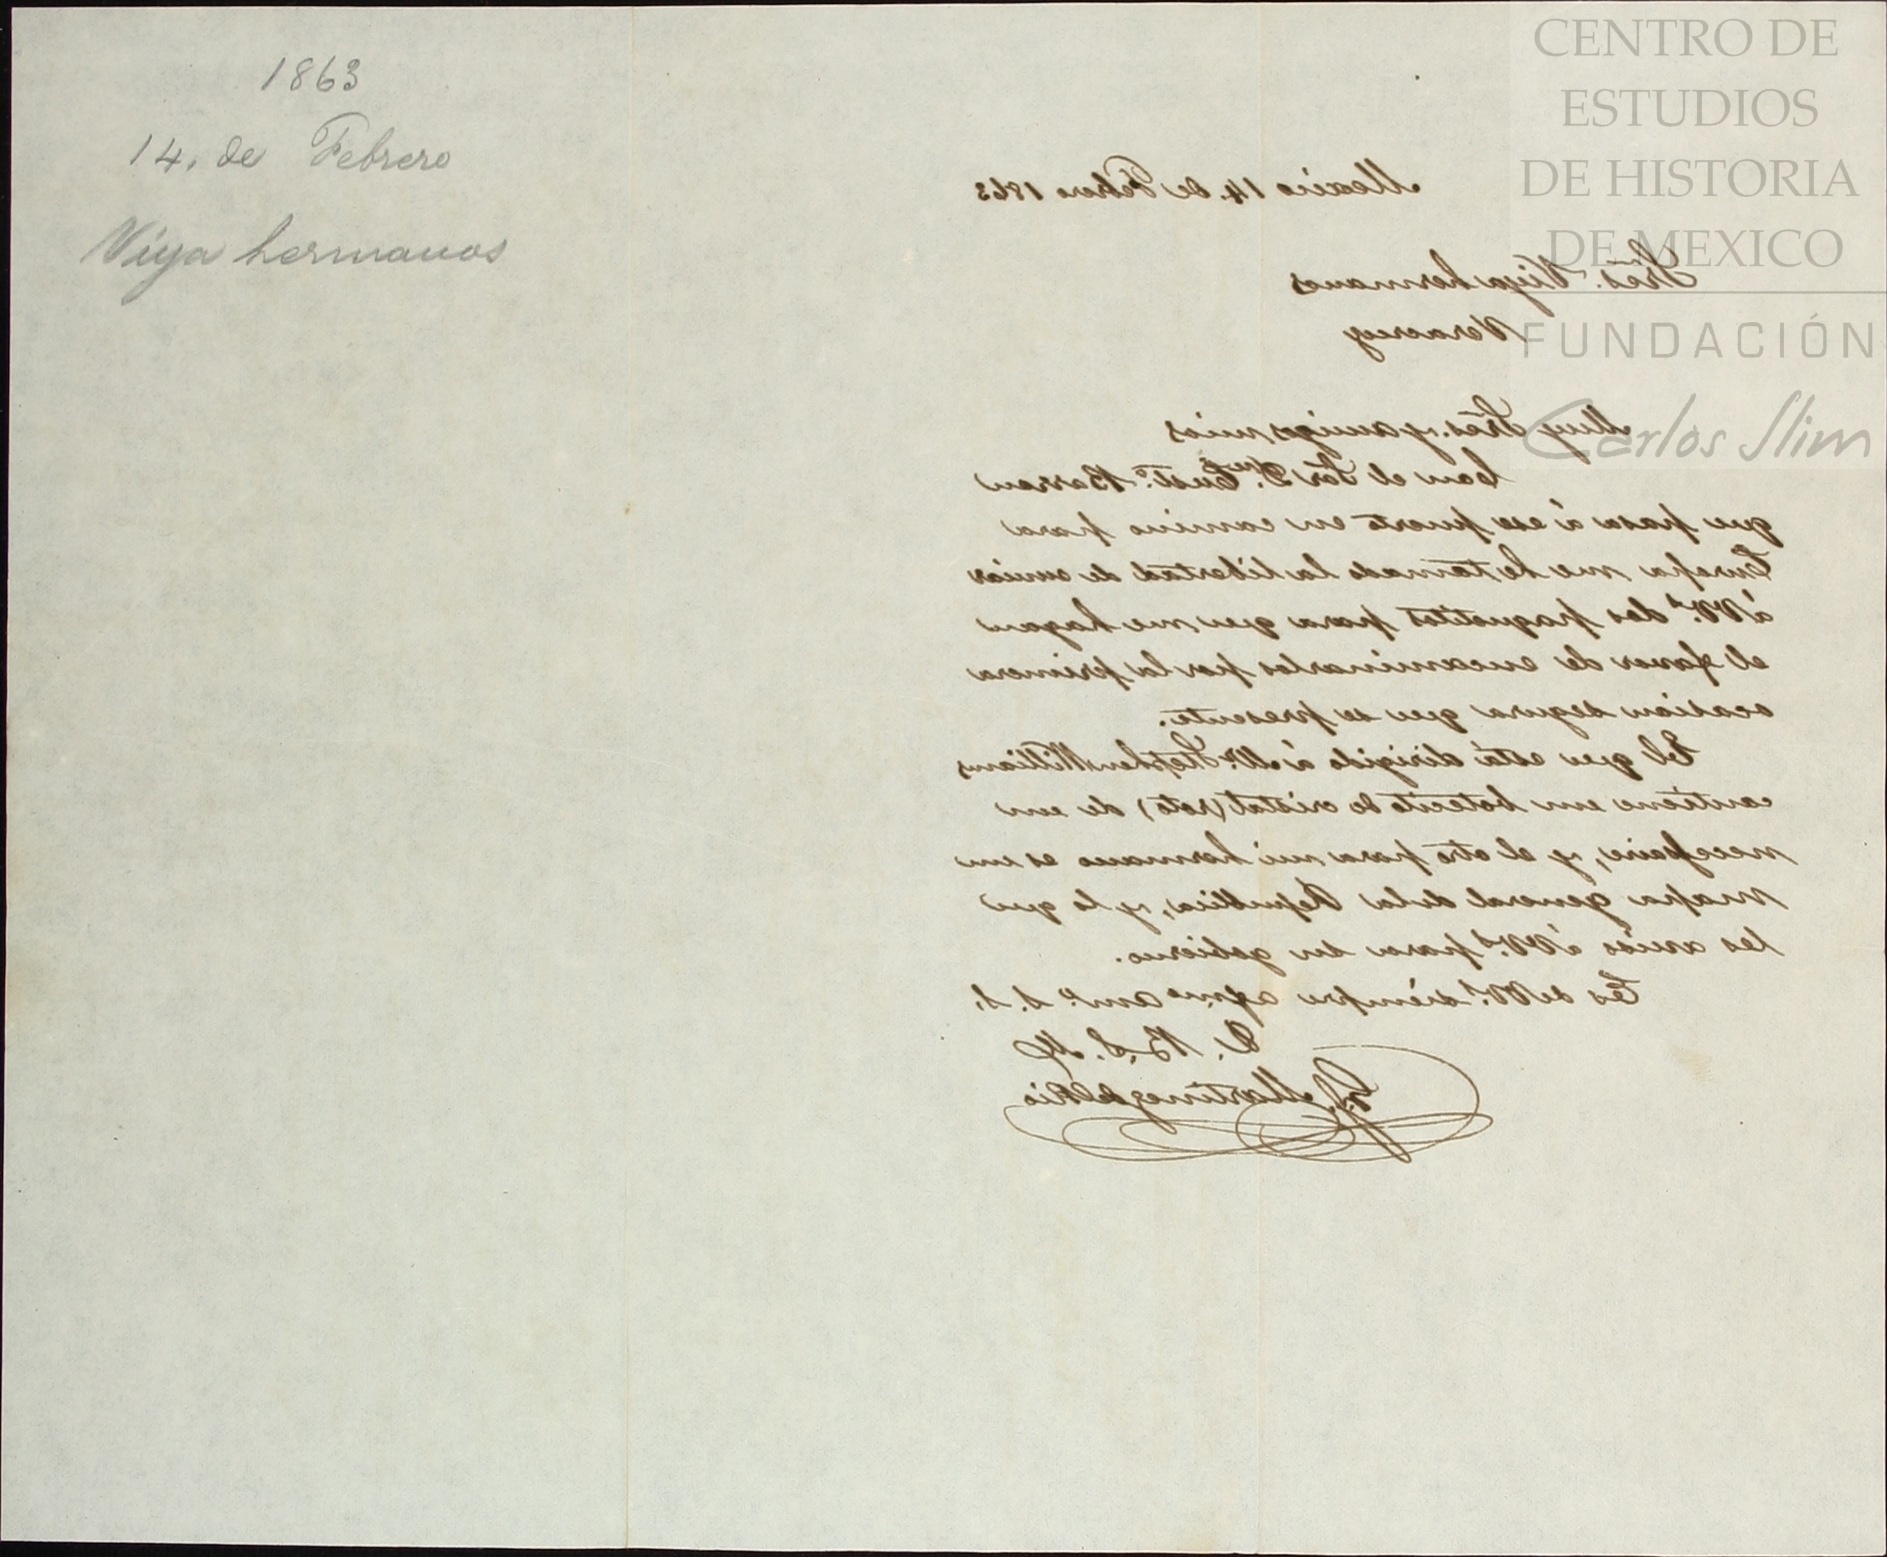 1863
14. de Febrero
Viya hermanos
CENTRO DE
ESTUDIOS
DE HISTORIA
DE MEXICO
FUNDACIÓN
Carlos Slim
Mexico 14. de Febrero 1863
Sres. Viya hermanos
Veracruz
Muy Sres. y amigos mios
Con el Sor Dn. Eustº. Barron
que pasa á ese puerto en camino para
Europa me he tomado la libertad de enviar
á VVs. dos paquetitos para que me hagan
el favor de encaminarlos por la primera
ocasion segura que se presente.
El que está dirigido á Mr. Stephen Williams
contiene un botecito de cristal (roto) de un
necessaire, y el otro para mi hermano es un
mapa general de la Republica, y lo que
les aviso á VVs. para su gobierno.
Es de VVs. siempre afmo. amº. S. S.
Q. B. S. M
Martinez del Rio